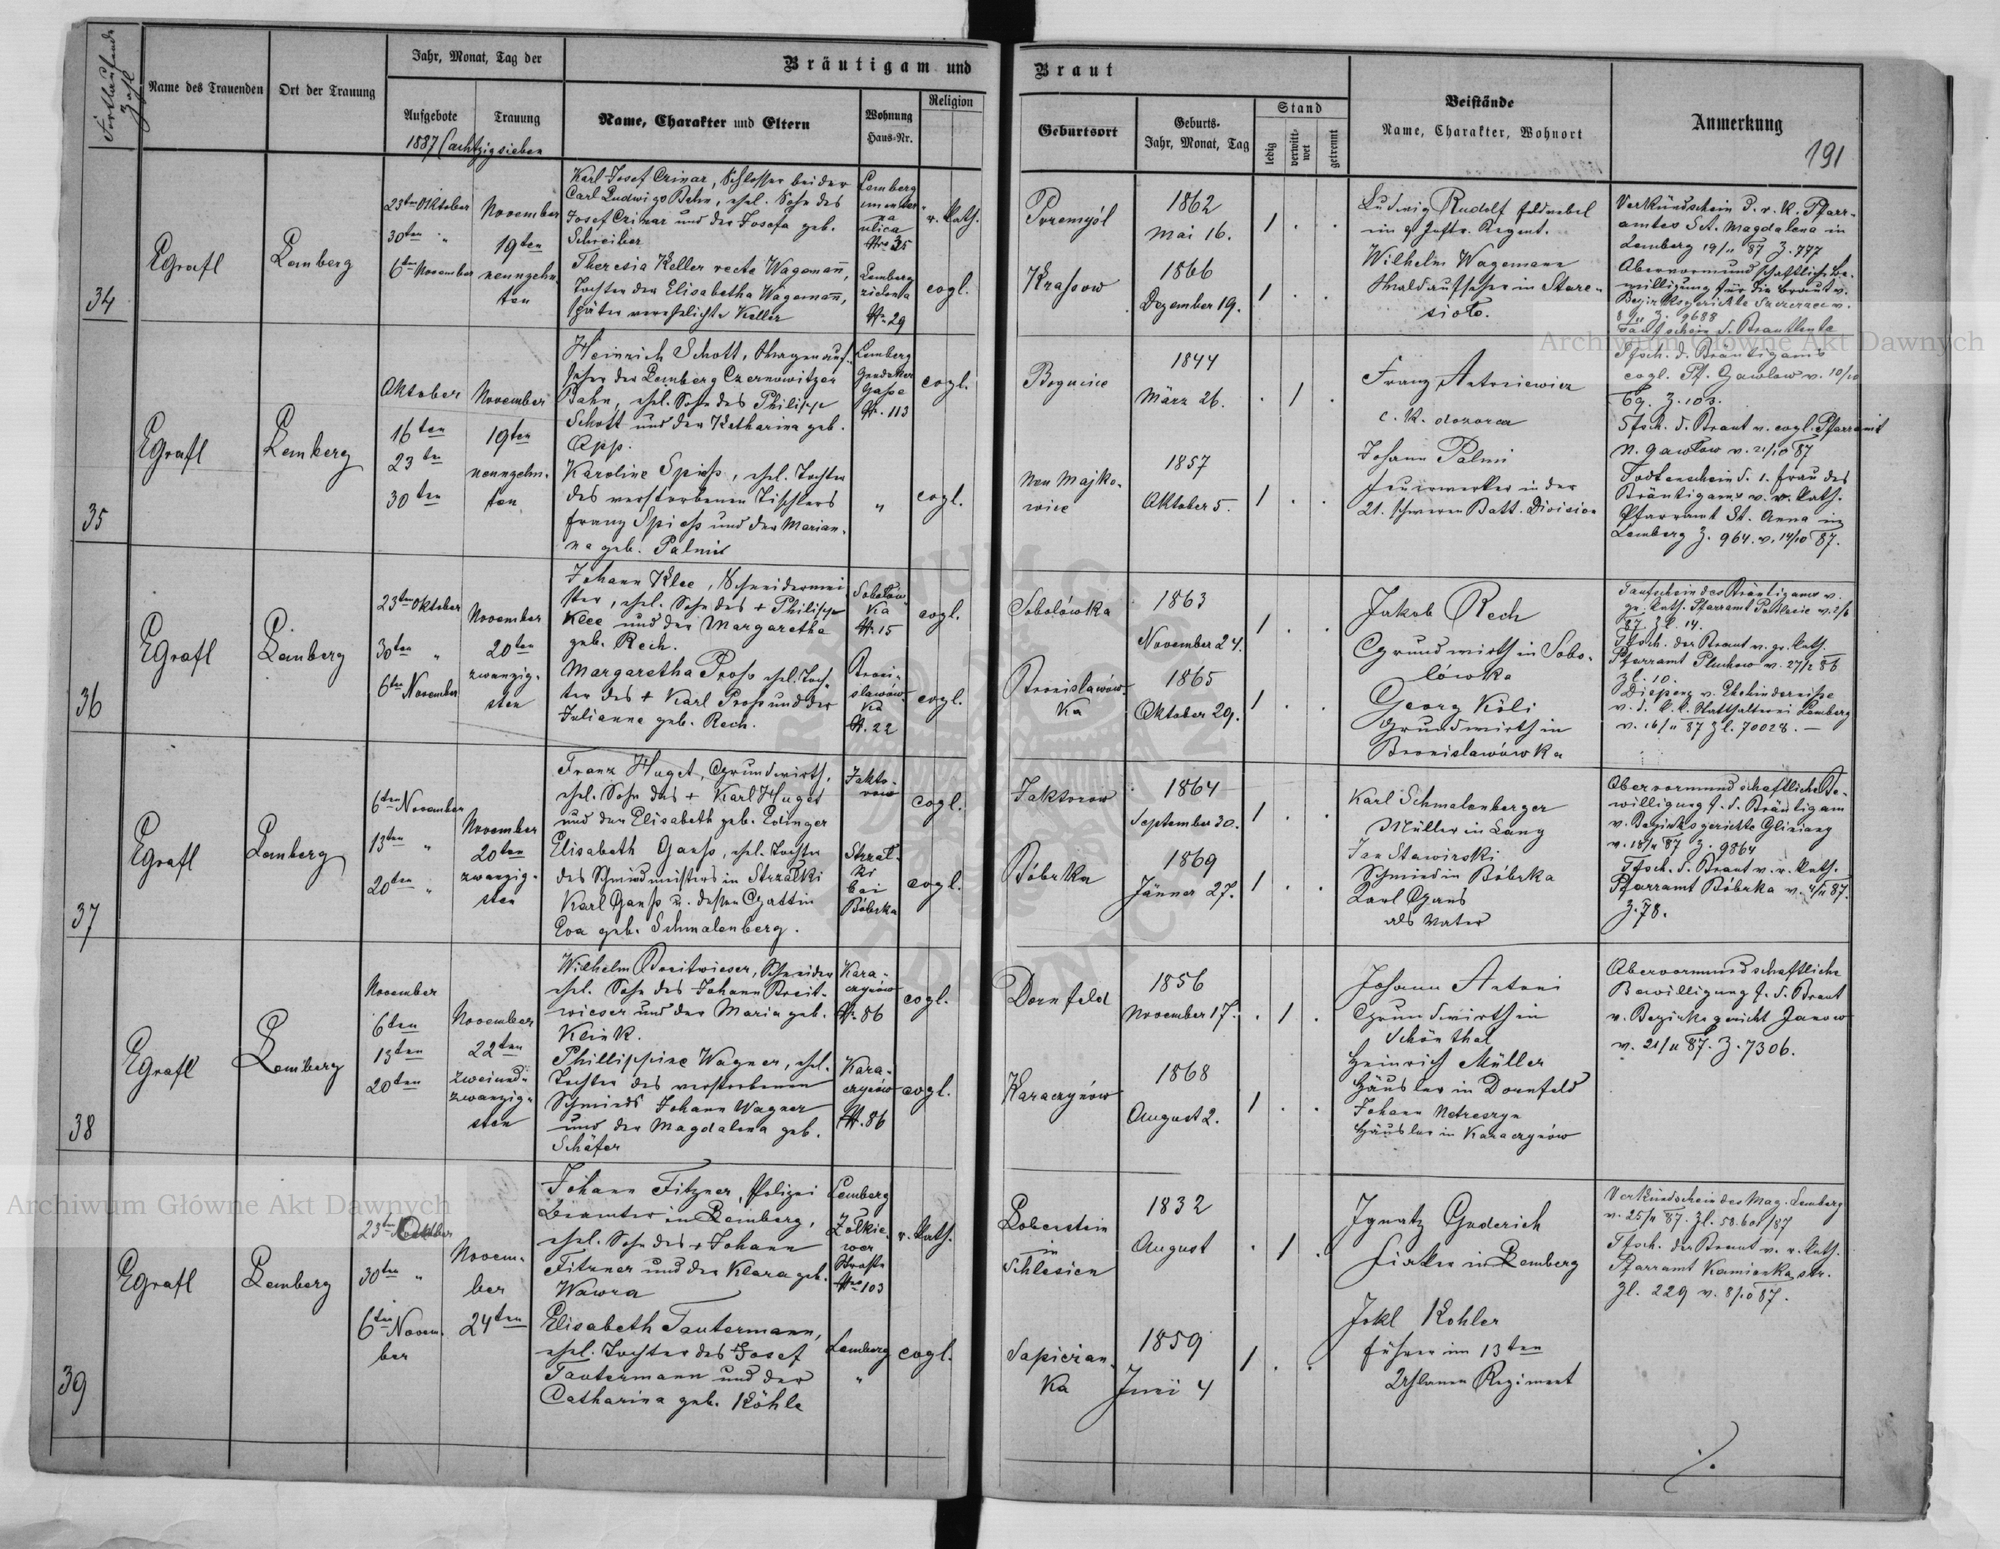 Fortlaufende
Zahl
Name des Trauenden
Ort der Trauung
Jahr, Monat, Tag der
Aufgebote
Trauung
1887 (achtzigsieben
Bräutigam und
Name, Charakter und Eltern
Wohnung
Haus-Nr.
Religion
Braut
Geburtsort
Geburts-
Jahr, Monat, Tag
Stand
ledig
verwitt-
wet
getrennt
Beistände
Name, Charakter, Wohnort
Anmerkung
191
34
EGrafl
Lemberg
23ten Oktober
30ten "
6ten November
November
19ten
neunzehn-
ten
Karl Josef Czinar, Schlosser bei der
Carl Ludwigs Bahn, ehel. Sohn des
Josef Czinar und der Josefa geb.
Schreiber
Theresia Keller recte Wagemann,
Tochter der Elisabetha Wagemann,
später verehelichte Keller
Lemberg
ulica
Nro 35
Lemberg
Nr. 29
r. kath.
evgl.
Przemyśl
Krassow
1862
Mai 16.
1866
Dezember 19.
1 . .
1 . .
Ludwig Rudolf Feldwebel
im 9 Inftr. Regmt.
Wilhelm Wagemann
Waldaufseher in Stare-
sioło.
Verkündschein d. r. k. Pfarr-
amtes St. Magdalena in
Lemberg 19/11 87 Z. 777
Obervormundschaftliche Be-
willigung für die Braut v.
Bezirksgerichte Szczerzec v.
Z. 9688
Taufschein d. Brautleute
35
EGrafl
Lemberg
Oktober
16ten
23ten
30ten
November
19ten
neunzehn-
ten
Heinrich Schott, Wagenauf-
seher der Lemberg Czernowitzer
Bahn, ehel. Sohn des Philipp
Schott und der Katharina geb.
Opp.
Karoline Spiess, ehel. Tochter
des verstorbenen Tischlers
Franz Spiess und der Marian-
na geb. Palmi
Lemberg
Grodeker
Gasse
Nr. 113
"
evgl.
evgl.
Bogucice
Neu Majko-
wice
1844
März 26.
1857
Oktober 5.
. 1 .
1 . .
Franz Antoniewicz
c. k. dozorca
Johann Palmi
Feuerwerker in der
21. schweren Batt. Division
Tfsch. d. Bräutigams
evgl. Pf. Gawlow v. 10/10
Z. 103.
Tfsch. d. Braut v. evgl. Pfarramt
N. Gawlow v. 21/10 87
Todtenschein d. 1. Frau des
Bräutigams v. r. kath.
Pfarramt St. Anna in
Lemberg Z. 964. v. 14/10 87.
36
EGrafl
Lemberg
23ten Oktober
30ten "
6ten November
November
20ten
zwanzig-
sten
Johann Klee, Schneidermei
ster, ehel. Sohn des + Philipp
Klee und der Margaretha
geb. Rech.
Margaretha Pross ehel. Toch-
ter des + Karl Pross und der
Julianna geb. Rech.
Sobolów-
ka
Nr. 15
Broni-
slawów-
ka
Nr. 22
evgl.
evgl.
Sobolówka
Bronislawów-
ka
1863
November 24.
1865
Oktober 29.
1 . .
1 . .
Jakob Rech
Grundwirth in Sobo-
lówka
Georg Köli
Grundwirth in
Bronislawówka
Taufschein des Bräutigams v.
gr. kath. Pfarramt
87. Zl. 14.
Tfsch. der Braut v. gr. kath.
Pfarramt Pluchow v. 27/2 86
Zl. 10.
Dispens v. Ehehindernisse
v. d. k. k. Statthalterei Lemberg
v. 16/11 87 Zl. 70028. —
37
EGrafl
Lemberg
6ten November
13ten "
20ten "
November
20ten
zwanzig-
sten
Franz Huget, Grundwirth,
ehel. Sohn des + Karl Huget
und der Elisabeth geb. Edinger
Elisabeth Ganss, ehel. Tochter
des Schmiedmeisters in Strzałki
Karl Ganss u. dessen Gattin
Eva geb. Schmalenberg.
Jakto-
row
Strzał-
ki
bei
Bóbrka
evgl.
evgl.
Jaktorow
Bóbrka
1864
September 30.
1869
Jänner 27.
1 . .
1 . .
Karl Schmalenberger
Müller in Lany
Jan Stawirski
Schmied in Bóbrka
Karl Gans
als Vater
Obervormundschaftliche Be-
willigung f. d. Bräutigam
v. Bezirksgerichte Gliniany
v. 18/11 87 Z. 9864
Tfsch. d. Braut v. r. kath.
Pfarramt Bóbrka v. 4/11 87.
Z. 78.
38
EGrafl
Lemberg
November
6ten
13ten
20ten
November
22ten
zweiund-
zwanzig-
sten
Wilhelm Breitwieser, Schneider
ehel. Sohn des Johann Breit-
wieser und der Maria geb.
Klink.
Phillippine Wagner, ehel.
Tochter des verstorbenen
Schmieds Johann Wagner
und der Magdalena geb.
Schäfer
Kara-
czynów
Nr. 86
Kara-
czynów
Nr. 86
evgl.
evgl.
Dornfeld
Karaczynów
1856
November 17.
1868
August 2.
. 1 .
1 . .
Johann Antoni
Grundwirth in
Schönthal
Heinrich Müller
Häusler in Dornfeld
Johann Netreczyn
Häusler in Karaczynów
Obervormundschaftliche
Bewilligung f. d. Braut
v. Bezirksgericht Janow
v. 21/11 87. Z. 7306.
39
EGrafl
Lemberg
23ten Oktober
30ten "
6ten Novem-
ber
Novem-
ber
24ten
Johann Fitzner, Polizei
Beamter in Lemberg,
ehel. Sohn des + Johann
Fitzner und der Klara geb.
Wawra
Elisabeth Tautermann,
ehel. Tochter des Josef
Tautermann und der
Catharina geb. Köhle
Lemberg
Zólkie-
wer
Strasse
Nro 103
Lemberg
"
r. kath.
evgl.
Loberstein
in
Schlesien
Sapiezan-
ka
1832
August
1859
Juni 4
. 1 .
1 . .
Ignatz Guderich
Fiaker in Lemberg
Jokl Kohler
Führer im 13ten
Uhlanen Regiment
Verkündschein des Mag. Lemberg
v. 25/11 87. Zl. 58.601/87
Tfsch. der Braut v. r. kath.
Pfarramt Kamionka str.
Zl. 229 v. 8/10 87.
Archiwum Główne Akt Dawnych
Archiwum Główne Akt Dawnych